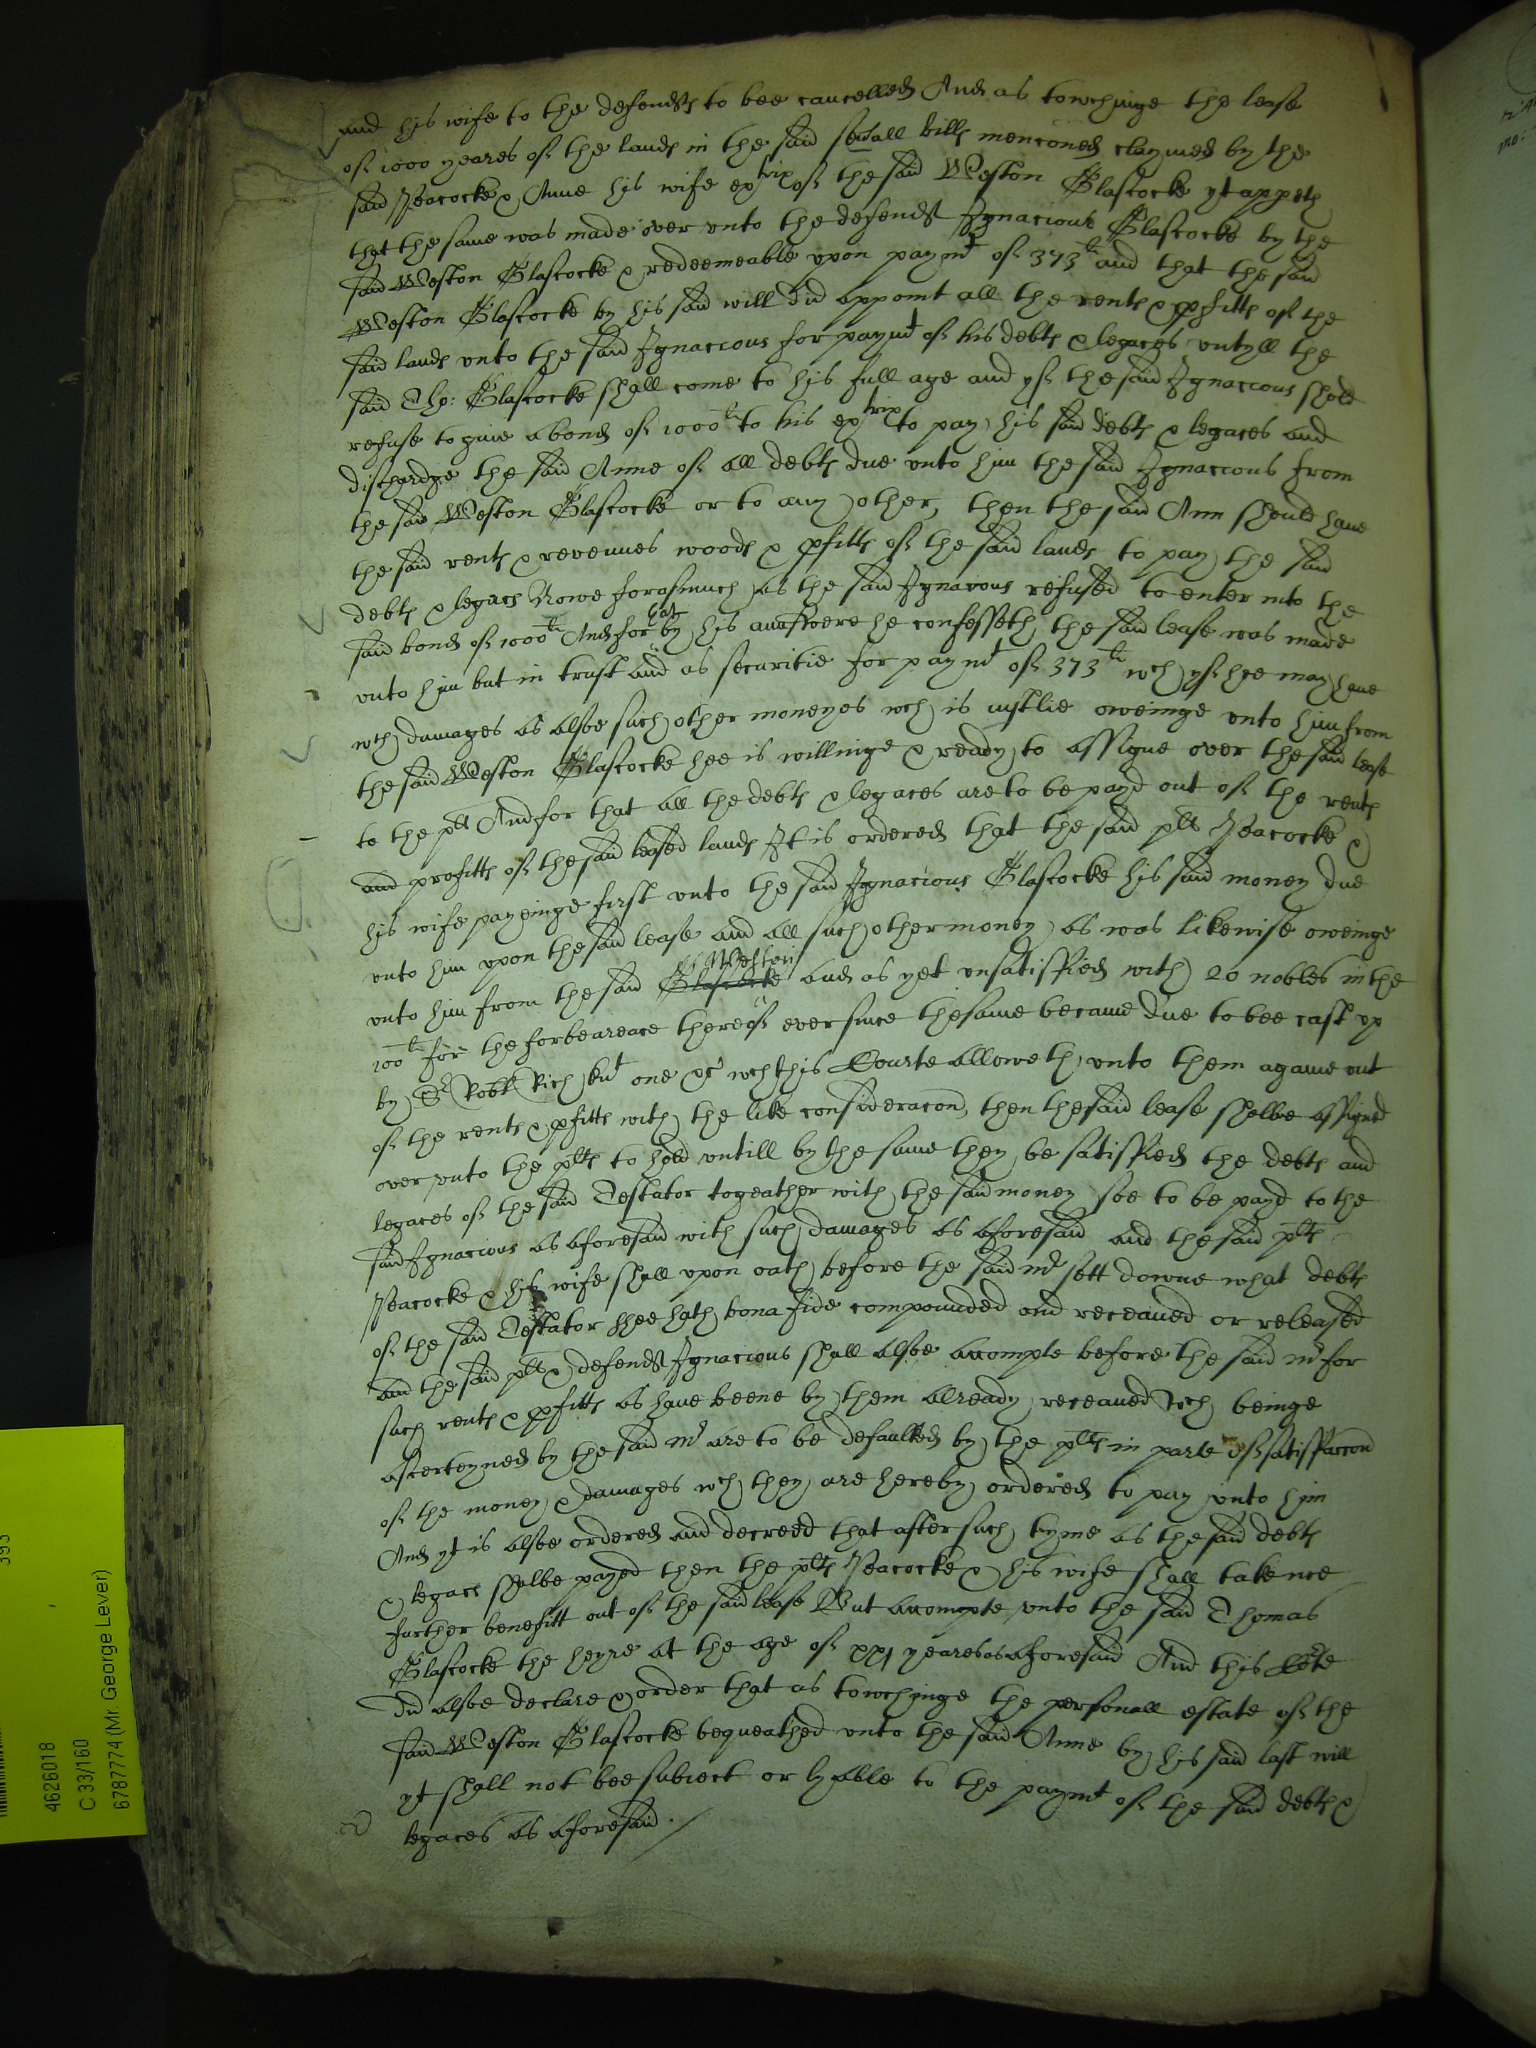 and his wife to the defendts to bee cancelled And as towchinge the lease
of 1000 yeares of the lands in the said seuall bills menconed claymed by the
said Peacocke & Anne his wife extrix of the said Weston Glascocke yt appeth
that the same was made over vnto the defendt Ignacious Glascocke by the
said Weston Glascocke & redeemeable vpon paymt of 373li and that the said
Weston Glascocke by his said will did appoint all the rents & pfitts of the
said lands vnto the said Ignacious for paymt of his debts & legaces vntyll the
said Tho: Glascocke shall come to his full age and yf the said Ignacious shold
refuse to giue a bond of 1000li to his extrix to pay his said debts & legaces and
dischardge the said Anne of all debts due vnto him the said Ignacious from
the said Weston Glascocke or to any other, then the said Ann should haue
the said rents & revenues woods & pfitts of the said lands to pay the said
debts & legaces Nowe forasmuch as the said Ignacious refused to enter into the
said bond of 1000li And for that by his aunswere he confesseth the said lease was made
vnto him but in trust and as securitie for paymt of 373li wch yf hee may haue
wth damages as alsoe such other moneyes wch is iustlie oweinge vnto him from
the said Weston Glascocke hee is willinge & ready to assigne over the said lease
to the plt And for that all the debts & legaces are to be payd out of the rents
and profitts of the said leased lands It is ordered that the said plts Peacocke &
his wife payeinge first vnto the said Ignacious Glascocke his said money due
vnto him vpon the said lease and all such other money as was likewise oweinge
vnto him from the said Glascocke Weston and as yet vnsatisfied with 20 nobles in the
100li for the forbeareace thereof ever since the same became due to bee cast vp
by Sr Robt Rich knt one &c wch this Courte alloweth vnto them againe out
of the rents & pfitts with the like consideracon, then the said lease shalbe assigned
over vnto the plts to hold vntill by the same they be satisfied the debts and
legaces of the said Testator togeather with the said money soe to be payd to the
said Ignacious as aforesaid with such damages as aforesaid and the said plts
Peacocke & his wife shall vpon oath before the said mr sett downe what debts
of the said Testator shee hath bona fide compounded and receaued or released
and the said plts & defendt Ignacious shall alsoe accompte before the said mr for
such rents & pfitts as haue beene by them already receaued wch beinge
ascerteyned by the said mr are to be defaulked by the plts in parte of satisfaccon
of the money & damages wch they are hereby ordered to pay vnto him
And yt is alsoe ordered and decreed that after such tyme as the said debts
& legaces shalbe payed then the plts Peacocke & his wife shall take noe
further benefitt out of the said lease But accompte vnto the said Thomas
Glascocke the heyre at the age of xxj yeares as aforesaid And this Corte
did alsoe declare & order that as towchinge the personall estate of the
said Weston Glascocke bequeathed vnto the said Anne by his said last will
yt shall not bee subiect or lyable to the paymt of the said debts &
legaces as aforesaid ./
393
4626018
C 33/160
6787774 (Mr. George Lever)